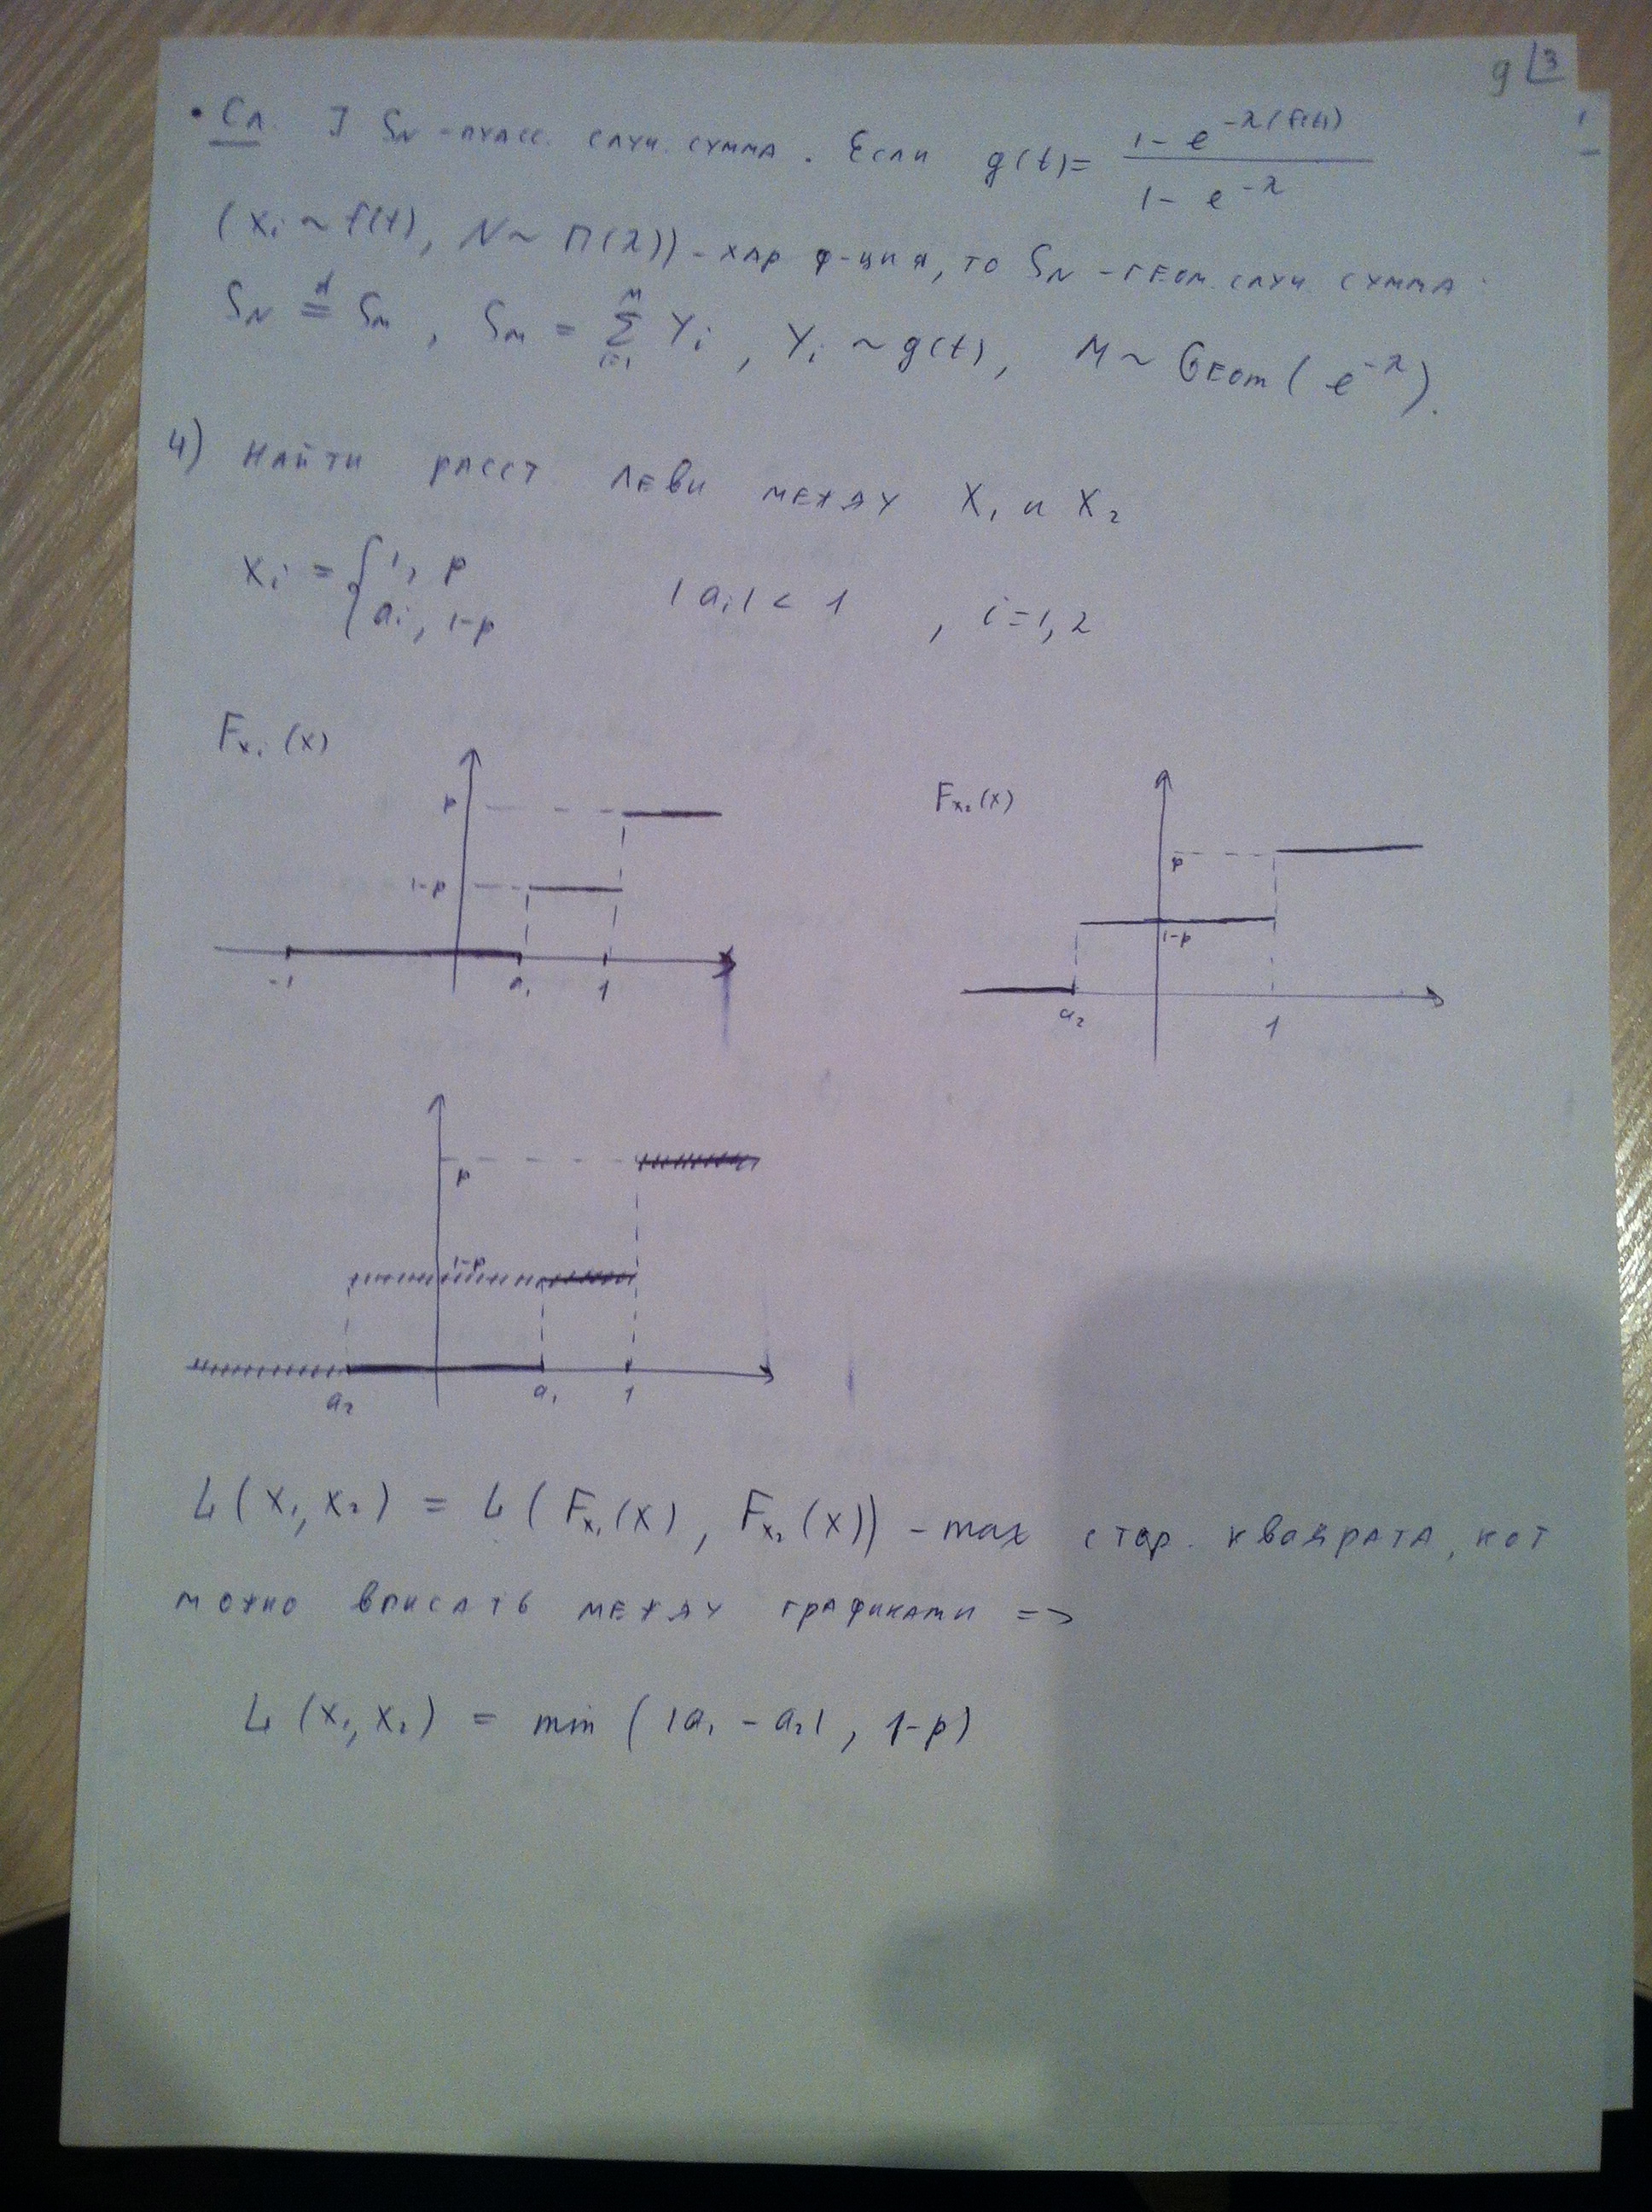 9 3
• Сл. ] S_N - пуасс. случ. сумма. Если g(t) = (1 - e^{-λ(f(t))}) / (1 - e^{-λ})
(X_i ~ f(t), N ~ П(λ)) - хар ф-ция, то S_N - геом. случ. сумма
S_N =^d S_M, S_M = Σ_{i=1}^{M} Y_i, Y_i ~ g(t), M ~ Geom(e^{-λ}).
4) Найти расст Леви между X_1 и X_2
X_i = { 1, p
a_i, 1-p |a_i| < 1, i = 1, 2
F_{X_1}(x)
p
1-p
-1 a_1 1
F_{X_2}(x)
p
1-p
a_2 1
p
1-p
a_2 a_1 1
L(X_1, X_2) = L(F_{X_1}(x), F_{X_2}(x)) - max стор. квадрата, кот
можно вписать между графиками =>
L(X_1, X_2) = min(|a_1 - a_2|, 1-p)